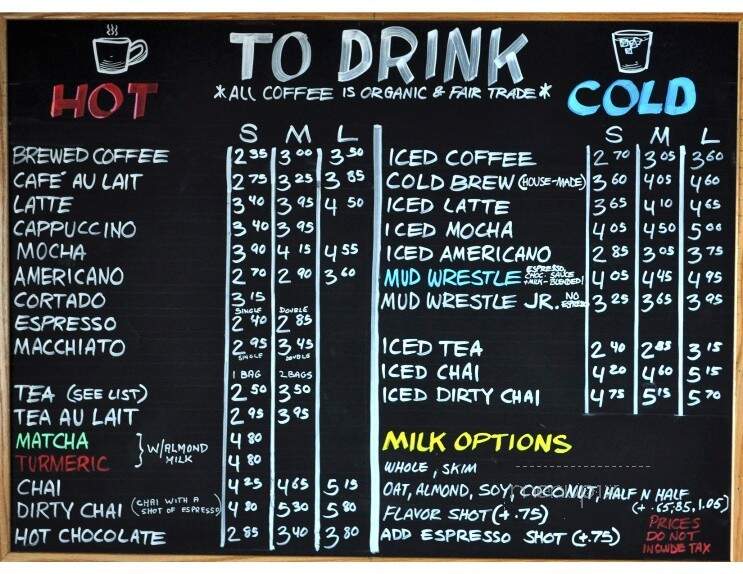 TO DRINK
*ALL COFFEE IS ORGANIC & FAIR TRADE*
HOT
S M L
BREWED COFFEE 2 35 3 00 3 50
CAFÉ AU LAIT 2 75 3 25 3 85
LATTE 3 40 3 95 4 50
CAPPUCCINO 3 40 3 95
MOCHA 3 90 4 15 4 55
AMERICANO 2 70 2 90 3 60
CORTADO 3 15
SINGLE DOUBLE
ESPRESSO 2 40 2 85
MACCHIATO 2 95 3 45
SINGLE DOUBLE
1 BAG 2 BAGS
TEA (SEE LIST) 2 50 3 50
TEA AU LAIT 2 95 3 95
MATCHA 4 80
W/ALMOND
MILK
TURMERIC 4 80
CHAI 4 25 4 65 5 15
DIRTY CHAI (CHAI WITH A
SHOT OF ESPRESSO) 4 80 5 30 5 80
HOT CHOCOLATE 2 85 3 40 3 80
COLD
S M L
ICED COFFEE 2 70 3 05 3 60
COLD BREW (HOUSE-MADE) 3 60 4 05 4 60
ICED LATTE 3 65 4 10 4 65
ICED MOCHA 4 05 4 50 5 00
ICED AMERICANO 2 85 3 05 3 75
MUD WRESTLE ESPRESSO,
CHOC. SAUCE
+MILK-BLENDED! 4 05 4 45 4 95
MUD WRESTLE JR. NO
ESPRESSO 3 25 3 65 3 95
ICED TEA 2 40 2 85 3 15
ICED CHAI 4 20 4 60 5 15
ICED DIRTY CHAI 4 75 5 15 5 70
MILK OPTIONS
WHOLE, SKIM
OAT, ALMOND, SOY, COCONUT, HALF N HALF
(+.65,.85,1.05)
FLAVOR SHOT (+.75)
ADD ESPRESSO SHOT (+.75)
PRICES
DO NOT
INCLUDE TAX